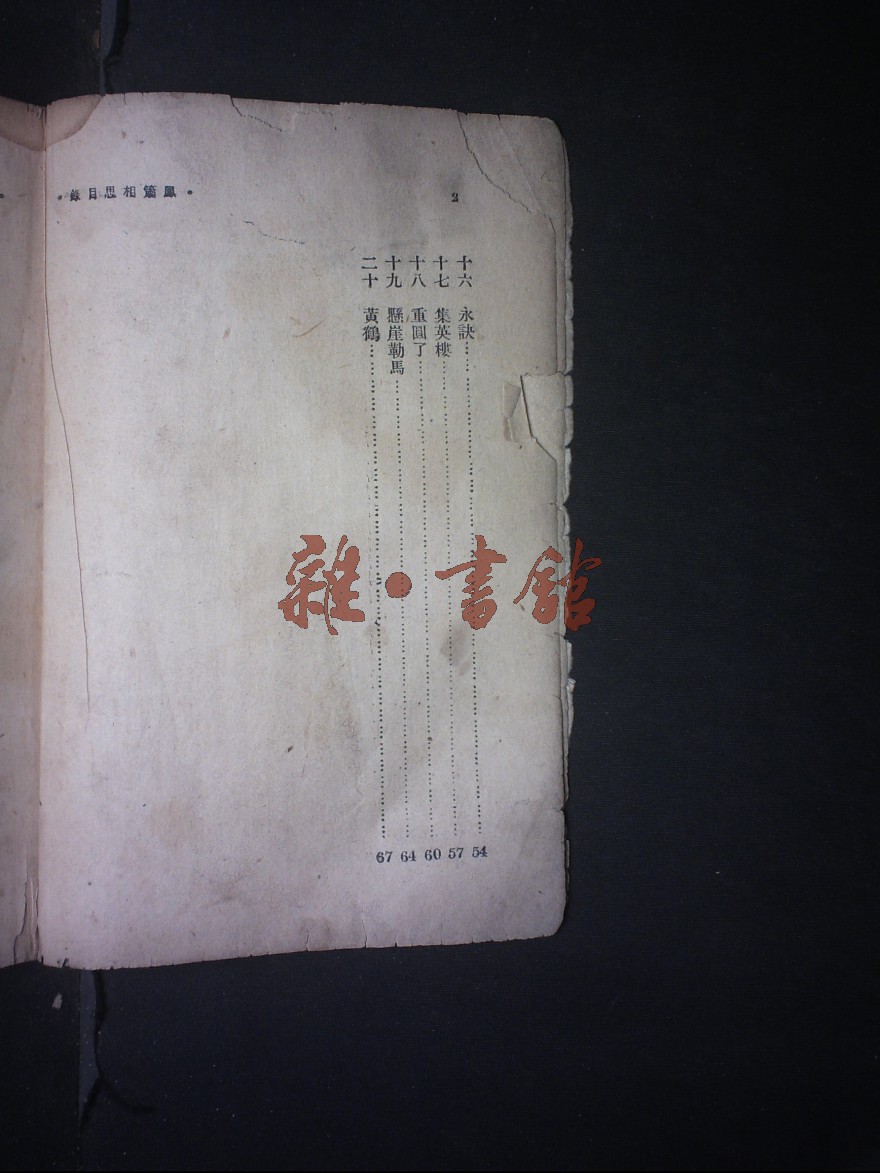 ・鳳簫相思目錄・
2
十六　永訣……54
十七　集英樓……57
十八　重圓了……60
十九　懸崖勒馬……64
二十　黃鶴……67
雜・書館